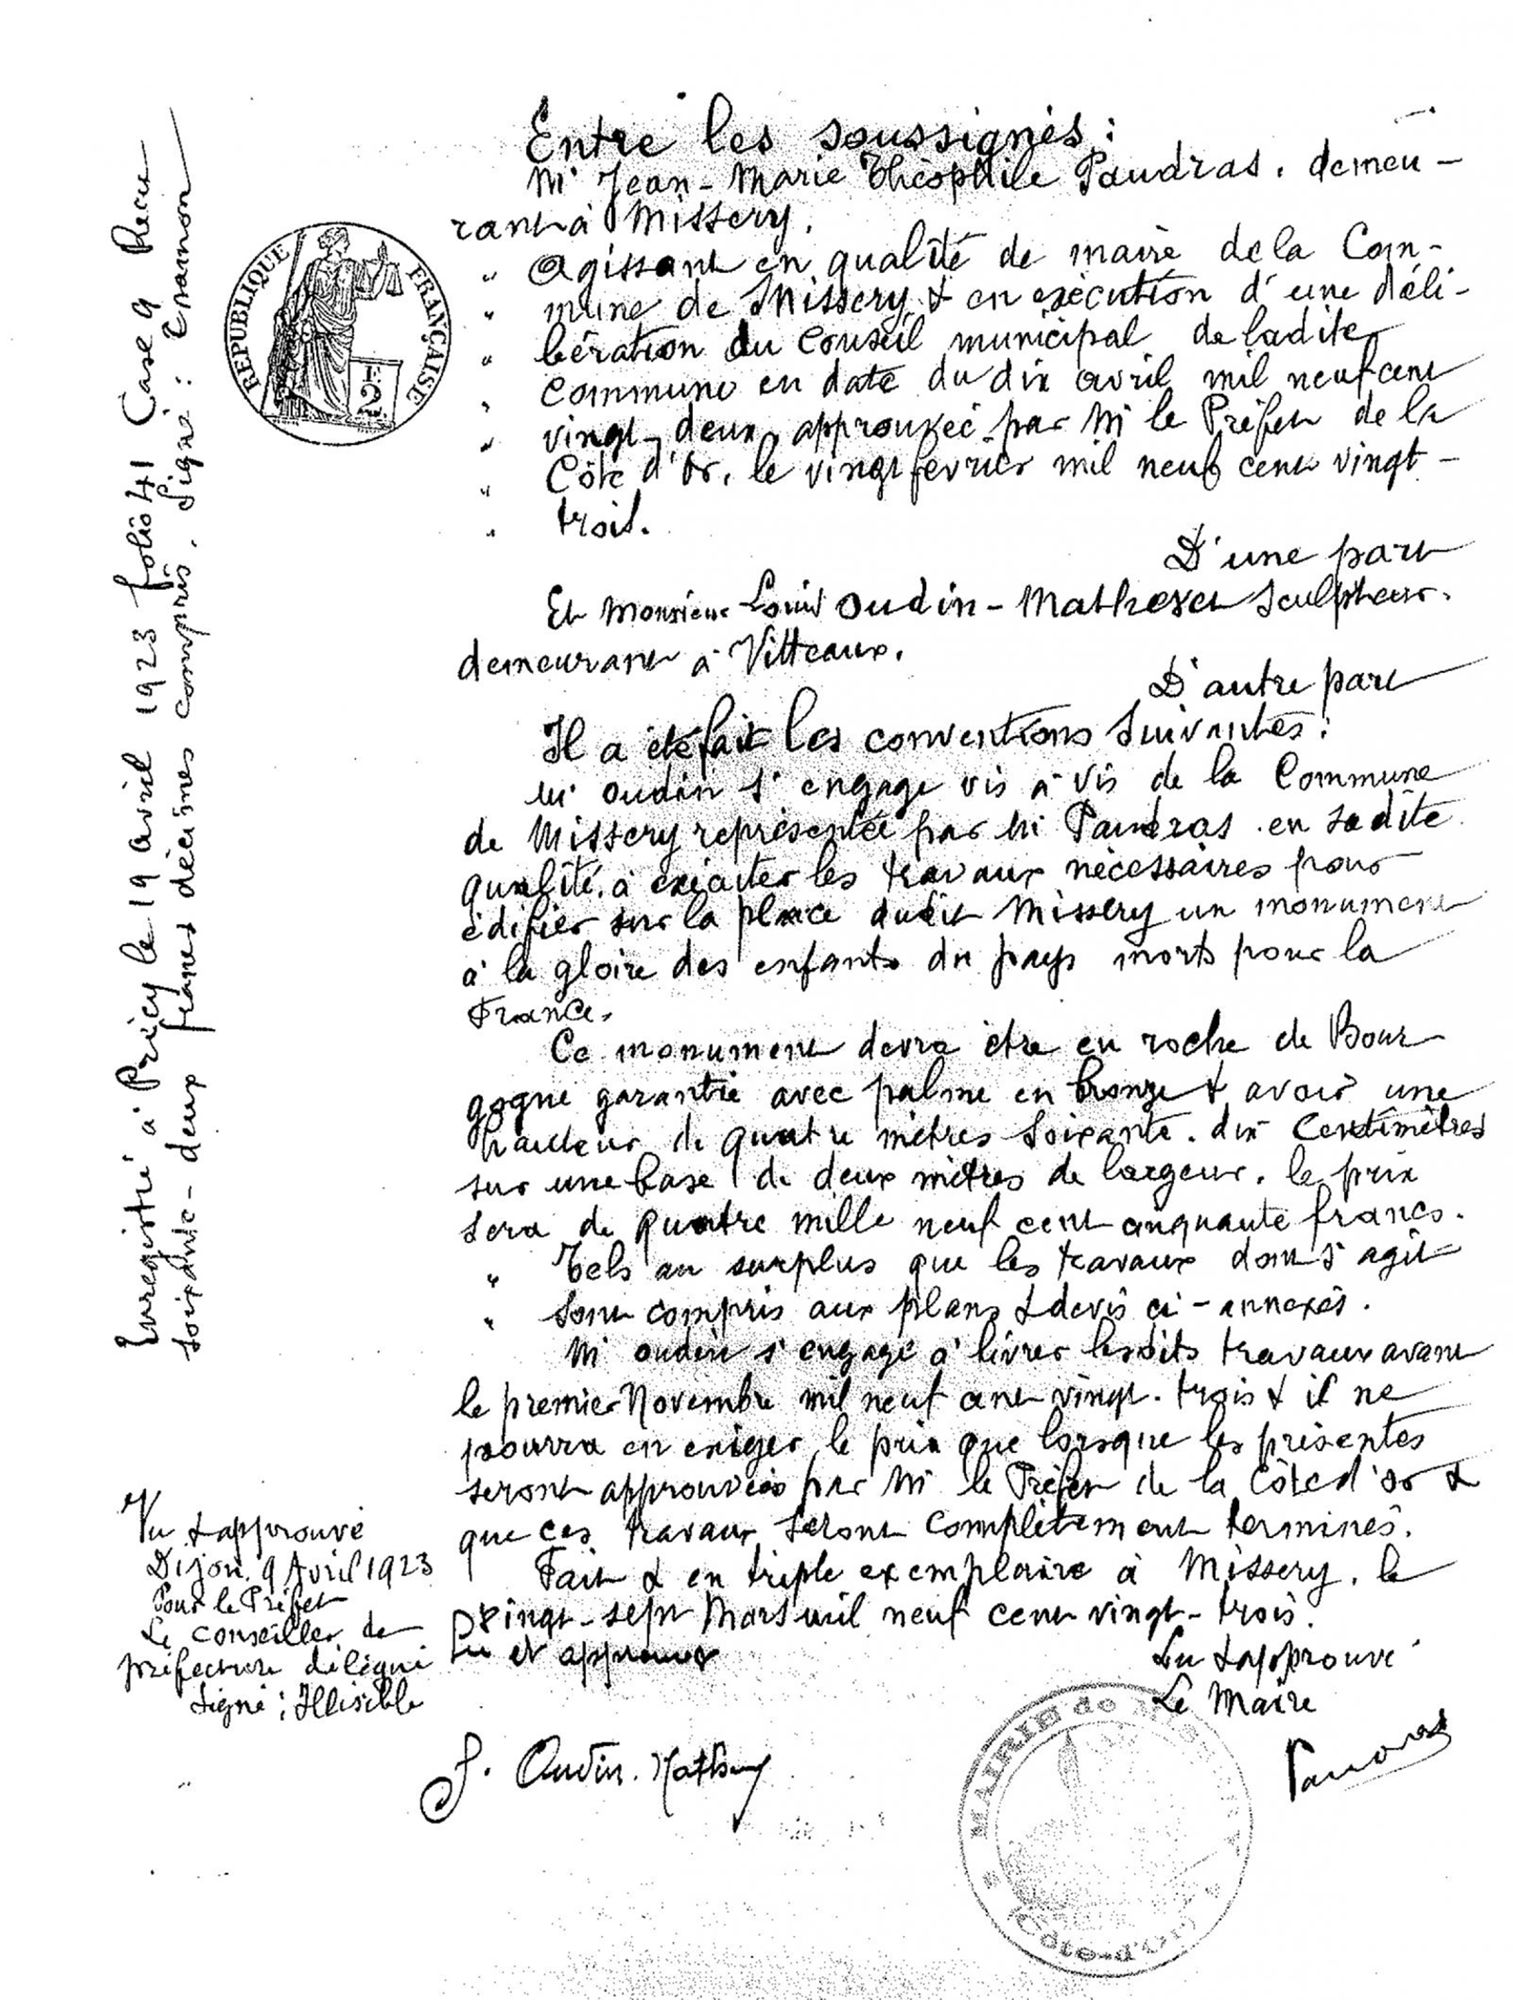 Entre les soussignés :
Mr Jean-Marie Théophile Paudras, demeu-
rant à Missery,
" Agissant en qualité de maire de la Com-
" mune de Missery & en exécution d'une déli-
" bération du Conseil municipal de ladite
" Commune en date du dix avril mil neuf cent
" vingt-deux, approuvée par Mr le Préfet de la
" Côte d'Or, le vingt février mil neuf cent vingt-
" trois.
D'une part
Et Monsieur Louis Oudin-Matheret Sculpteur.
demeurant à Vitteaux.
D'autre part
Il a été fait les conventions suivantes :
Mr Oudin s'engage vis à vis de la Commune
de Missery représentée par Mr Paudras en sadite
qualité, à exécuter les travaux nécessaires pour
édifier sur la place dudit Missery un monument
à la gloire des enfants du pays morts pour la
France.
Ce monument devra être en roche de Bour
gogne garantie avec palme en bronze & avoir une
hauteur de quatre mètres soixante-dix centimètres
sur une base de deux mètres de largeur. le prix
sera de quatre mille neuf cent cinquante francs.
" Tels au surplus que les travaux dont s'agit
" sont compris aux plans & devis ci-annexés.
Mr Oudin s'engage à livrer lesdits travaux avant
le premier Novembre mil neuf cent vingt-trois & il ne
pourra en exiger le prix que lorsque les présentes
seront approuvées par Mr le Préfet de la Côte d'Or &
que ces travaux seront complètement terminés.
Fait & en triple exemplaire à Missery, le
vingt-sept Mars mil neuf cent vingt-trois.
Lu et approuvé
Lu & approuvé
Le Maire
Paudras
MAIRIE de MISSERY
(Côte-d'Or)
RÉPUBLIQUE FRANÇAISE
2 F.
Enregistré à Précy le 19 avril 1923 folio 41 Case 9 Reçu
soixante-deux francs décimes compris. Signé :
Vu & approuvé
Dijon, 9 Avril 1923
Pour le Préfet
Le conseiller de
préfecture délégué
Signé : Illisible